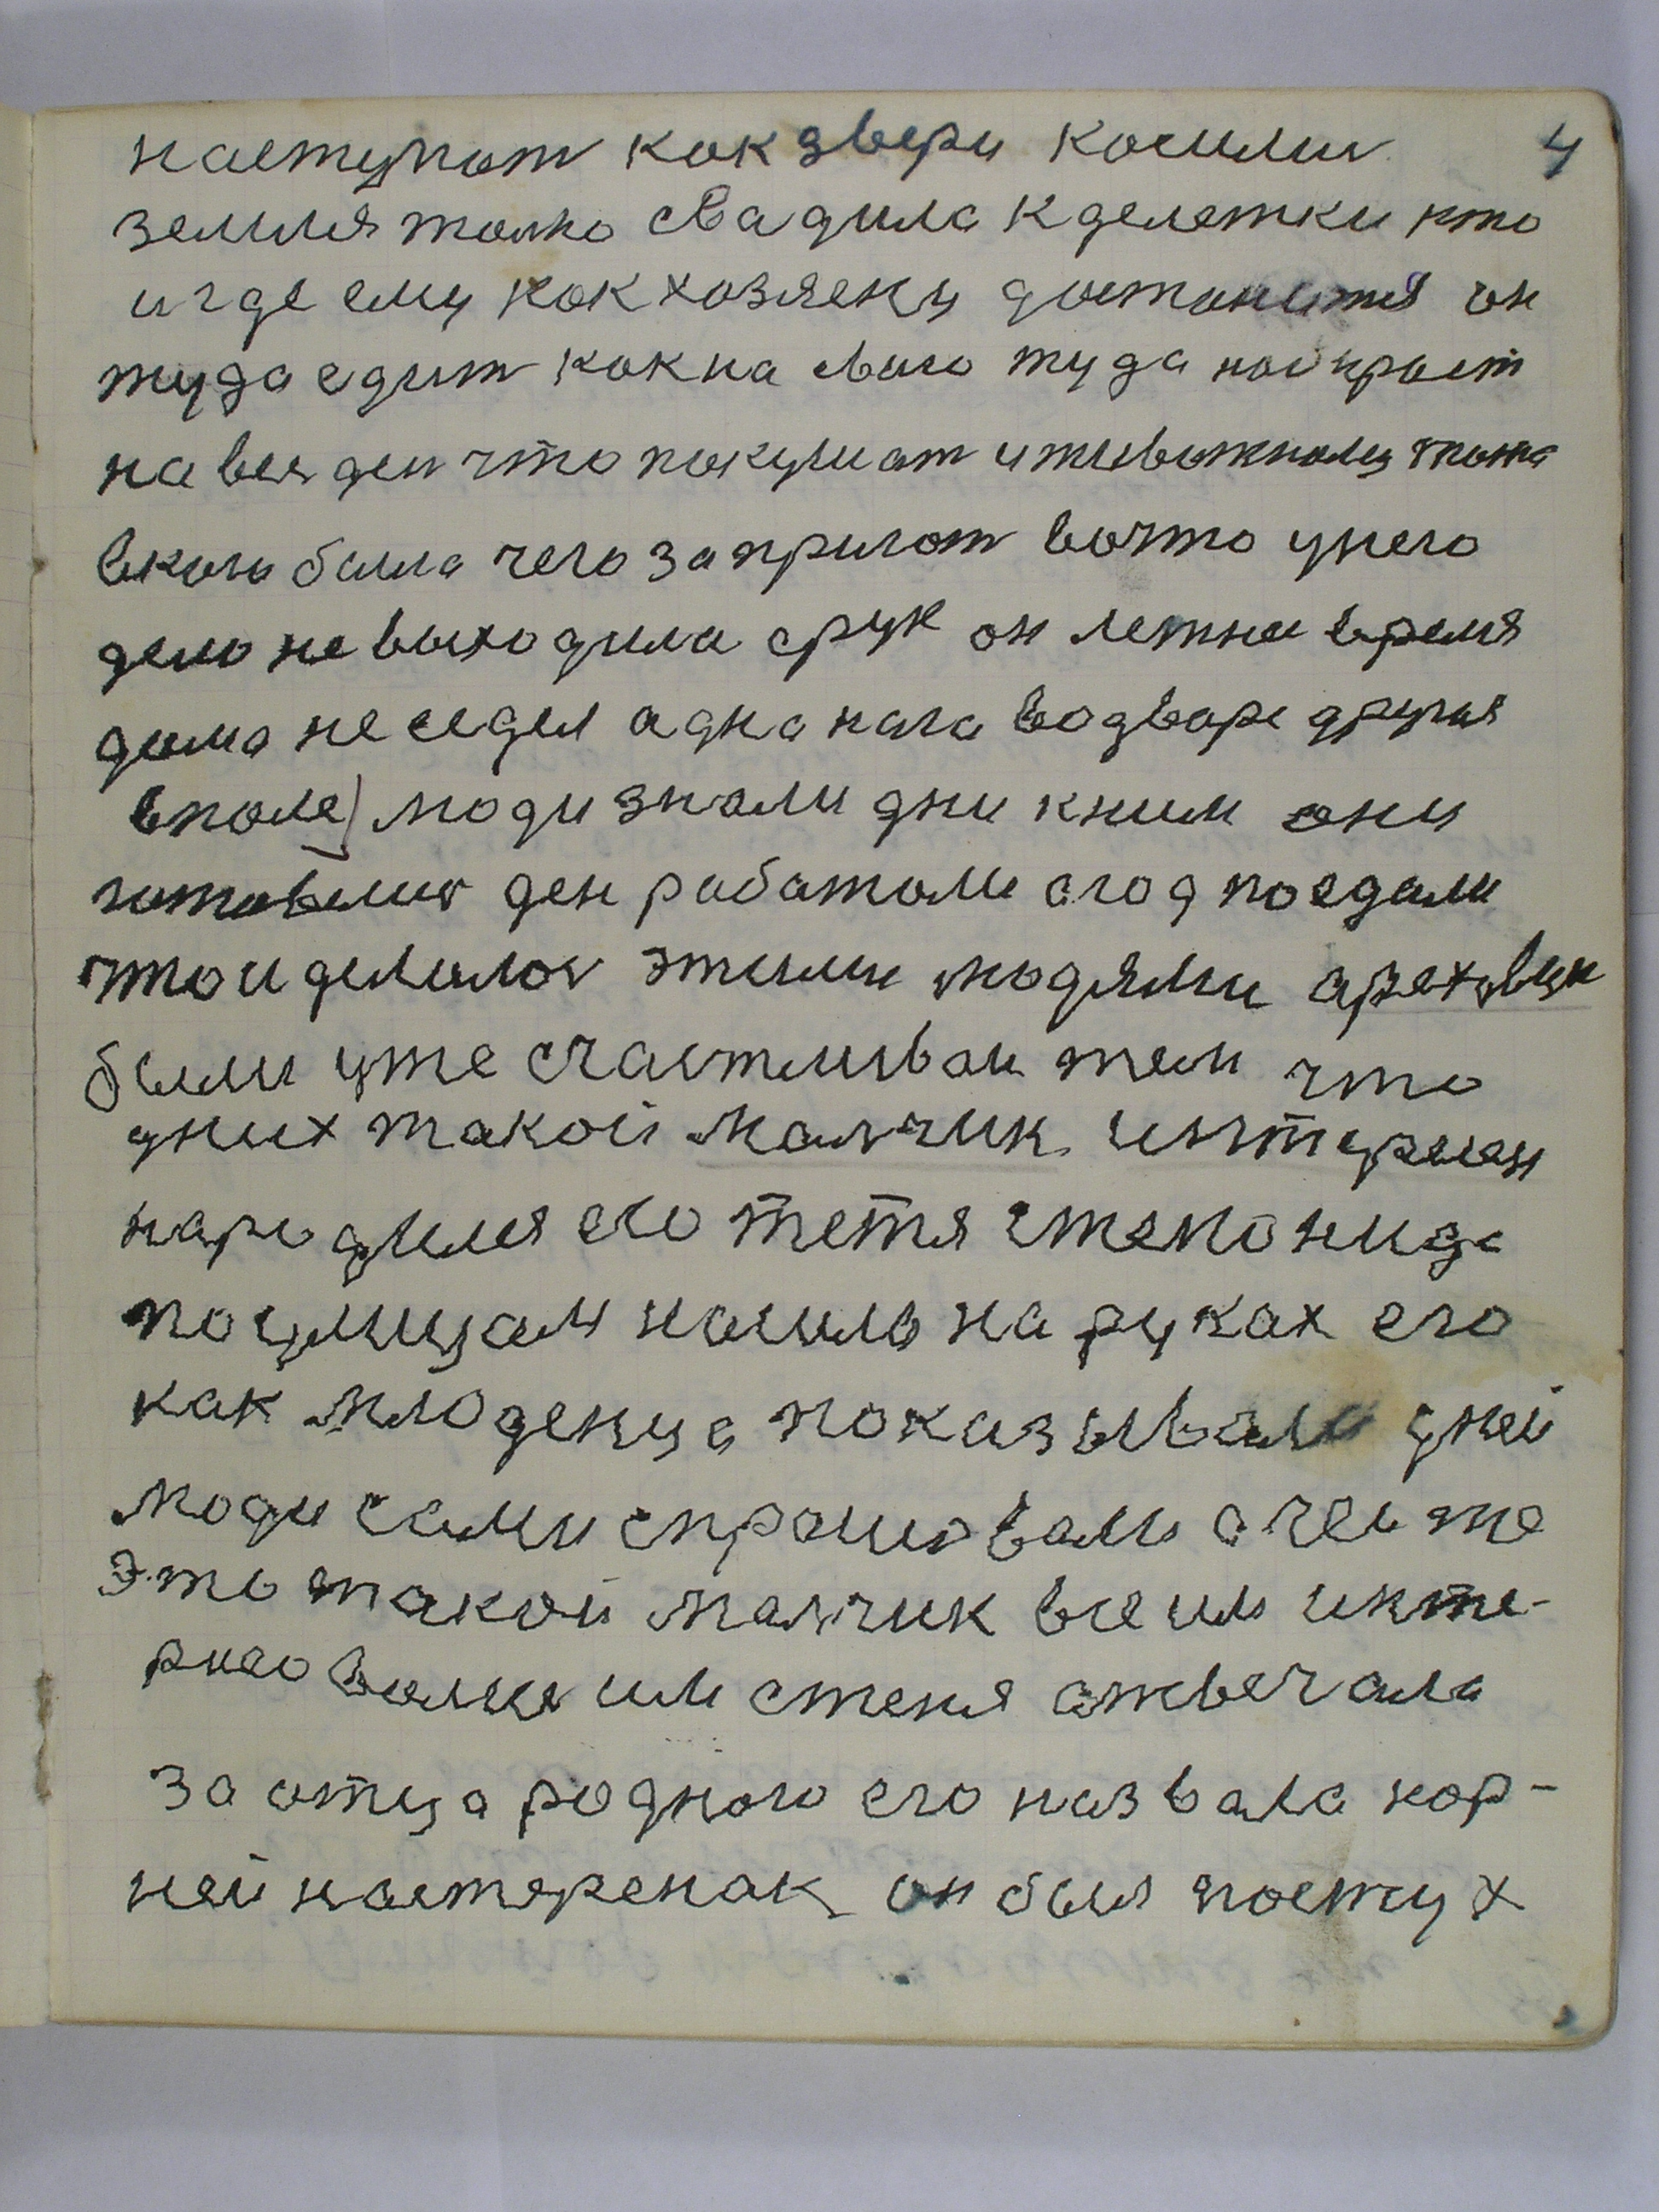 наступат как звери косили 4
земля толко свадила кделетки кто
игде ему как хозяену достанится он
туда едит как на свою туда накрает
на весь ден что покушат иживотному тожа
вкого была чего запригат вочто унего
дело невыходила срук он летнее время
дома неседел адна нага водворе другая
вполе) люди знали дни кним они
готовелис ден работали агод поедали
что и делалос этими людями
были уже счастливаи тем что
уних такой малчик
народился его тетя степонида
поулицам насила на руках его
как млоденца показывали уней
люди сами спрашовали ачеи же
это такой малчик все им инте-
рисовалис им степа атвечала
за отца родного его назвала кор-
ней настеренак он был пастух